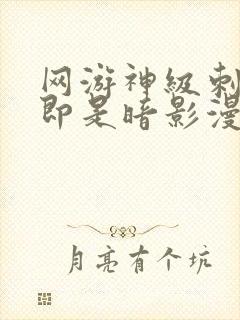 网游神级刺
即是暗影漫
月亮有个坑